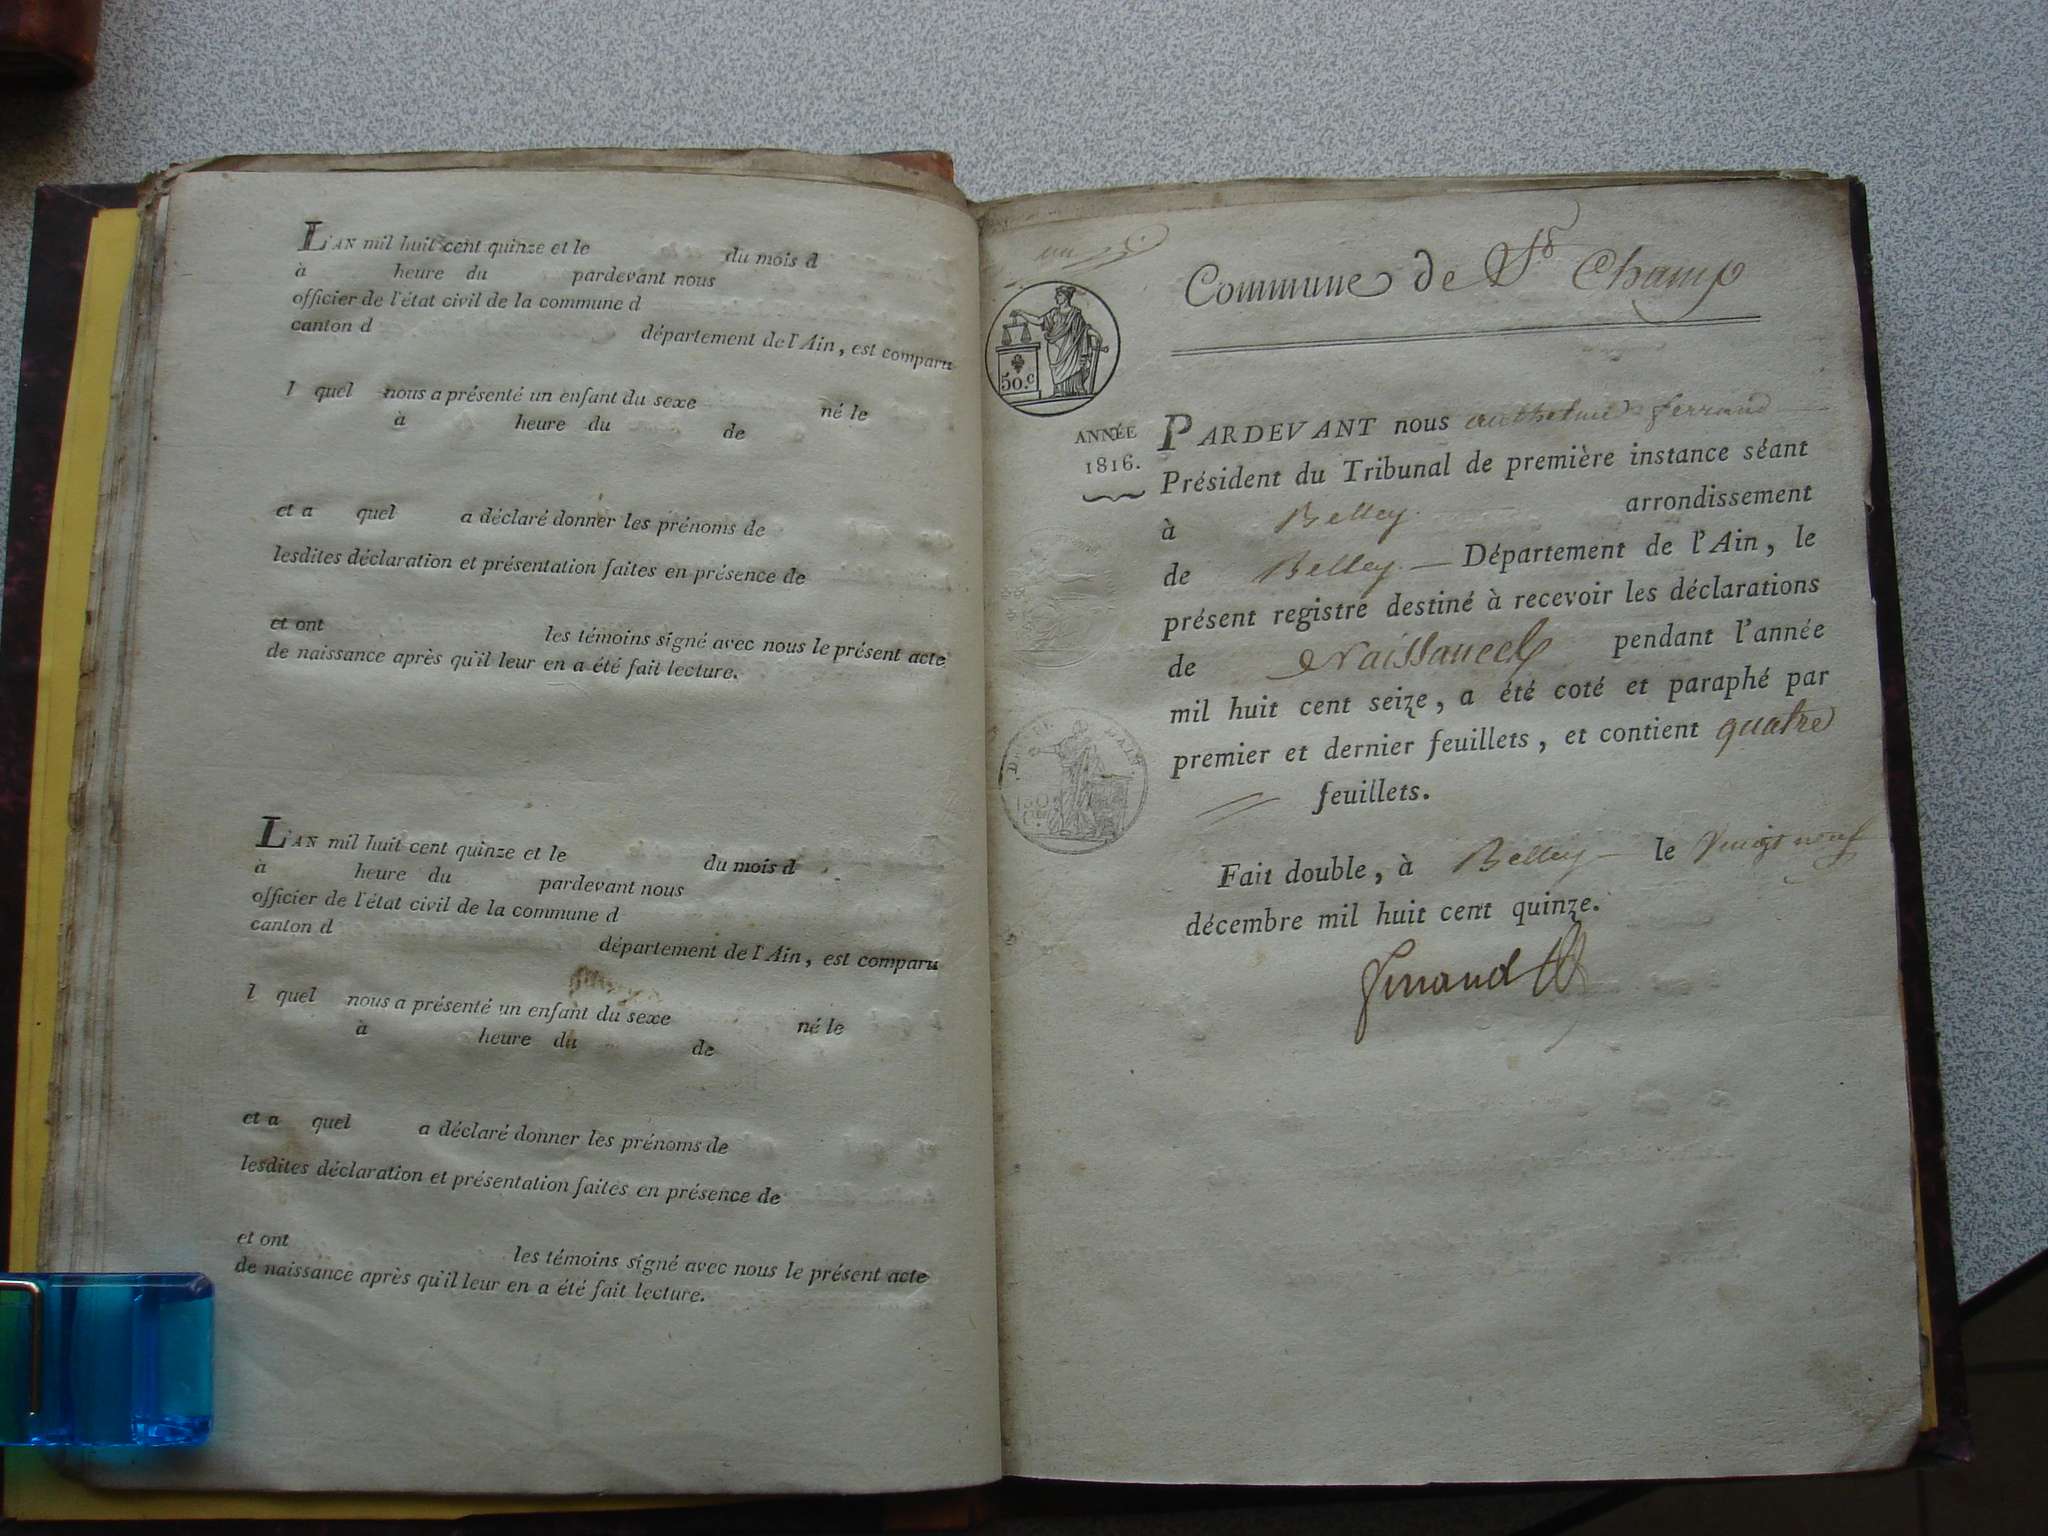 L'AN mil huit cent quinze et le du mois d
à heure du pardevant nous
officier de l'état civil de la commune d
canton d département de l'Ain, est comparu
l quel nous a présenté un enfant du sexe né le
à heure du de
et a quel a déclaré donner les prénoms de
lesdites déclaration et présentation faites en présence de
et ont les témoins signé avec nous le présent acte
de naissance après qu'il leur en a été fait lecture.
L'AN mil huit cent quinze et le du mois d
à heure du pardevant nous
officier de l'état civil de la commune d
canton d département de l'Ain, est comparu
l quel nous a présenté un enfant du sexe né le
à heure du de
et a quel a déclaré donner les prénoms de
lesdites déclaration et présentation faites en présence de
et ont les témoins signé avec nous le présent acte
de naissance après qu'il leur en a été fait lecture.
un
Commune de St Champ
50.c
ANNÉE
1816.
PARDEVANT nous anthelme ferrand
Président du Tribunal de première instance séant
à Belley. arrondissement
de Belley. Département de l'Ain, le
présent registre destiné à recevoir les déclarations
de Naissances pendant l'année
mil huit cent seize, a été coté et paraphé par
premier et dernier feuillets, et contient quatre
feuillets.
Fait double, à Belley le vingt neuf
décembre mil huit cent quinze.
ferrand